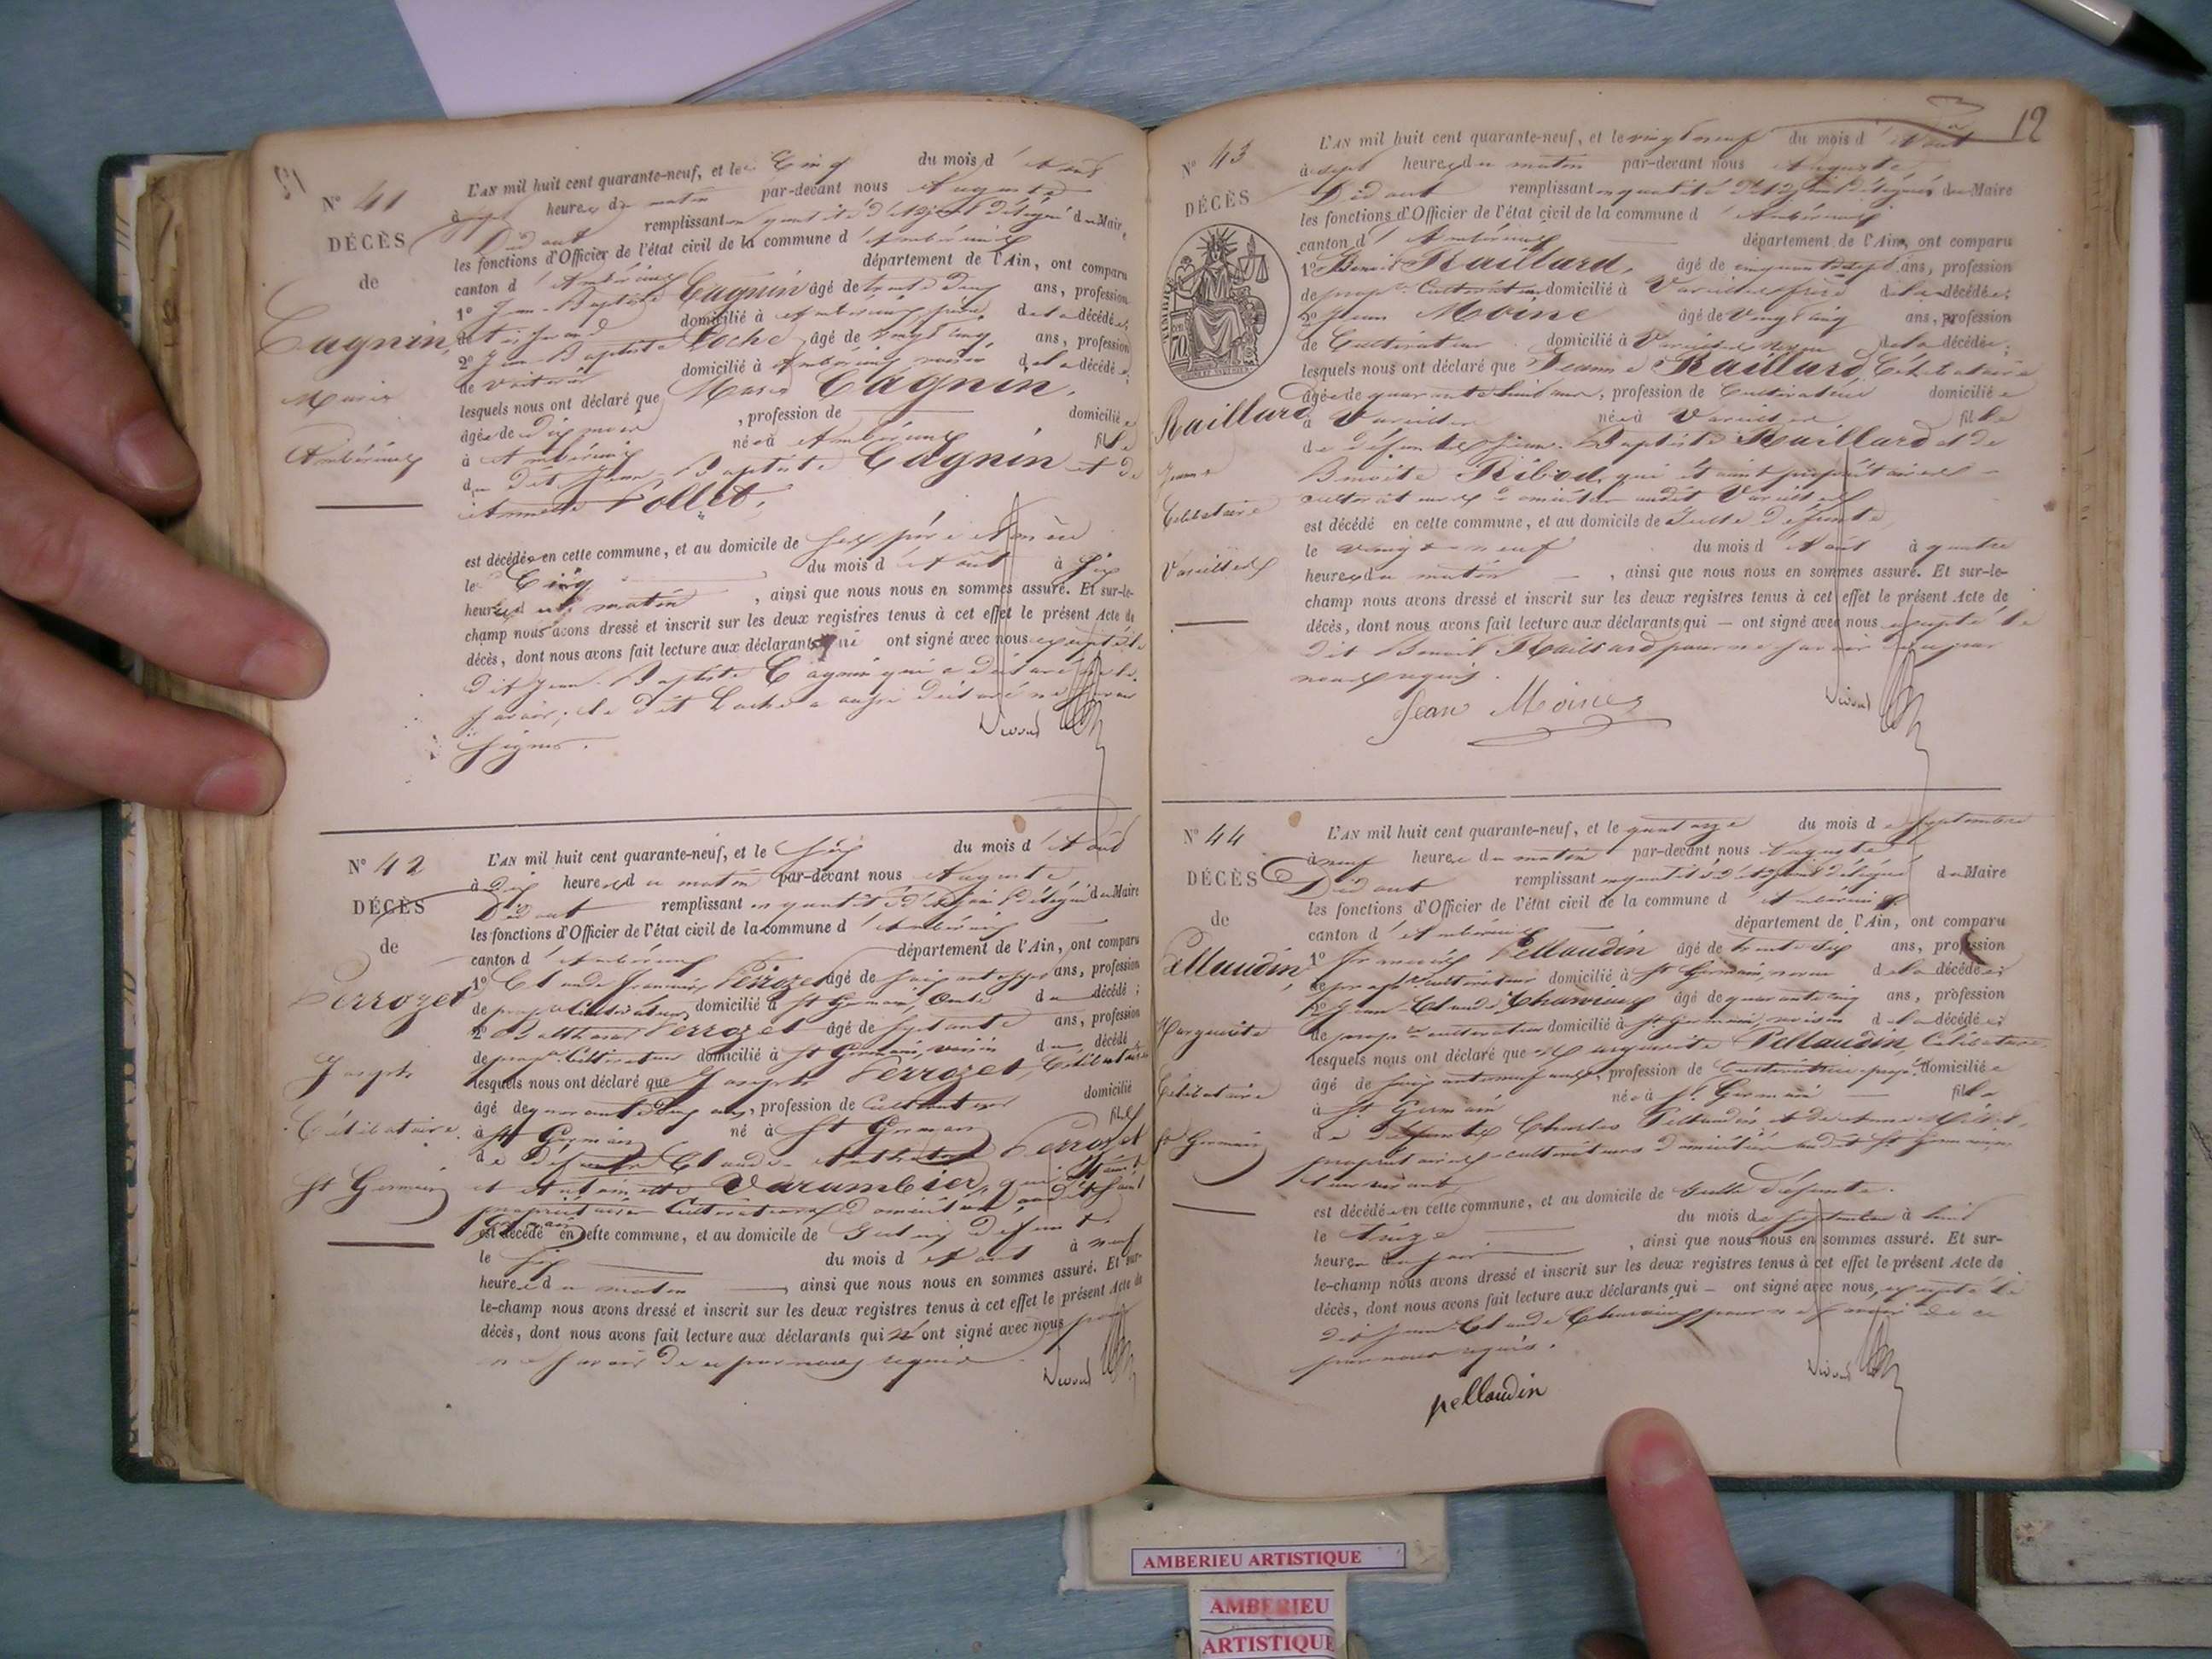 N° 41
DÉCÈS
de
Cagnin
Marie
Ambérieux
L'AN mil huit cent quarante-neuf, et le Cinq du mois d'Aout
à sept heures du matin par-devant nous Auguste
Didout remplissant en qualité d'Adjoint délégué du Maire,
les fonctions d'Officier de l'état civil de la commune d'Ambérieux
canton d'Ambérieux département de l'Ain, ont comparu
1° Jean-Baptiste Cagnin âgé de trente deux ans, profession
de tisserand domicilié à Ambérieux, père de la décédée;
2° Jean-Baptiste Loche, âgé de vingt cinq ans, profession
de voiturier domicilié à Ambérieux voisin de la décédée;
lesquels nous ont déclaré que Marie Cagnin,
âgée de dix mois, profession de domiciliée
à Ambérieux née à Ambérieux fille
du dit Jean-Baptiste Cagnin et de
Annette Vollet,
est décédée en cette commune, et au domicile de ses père et mère
le Cinq du mois d'Août à six
heures du matin, ainsi que nous nous en sommes assuré. Et sur-le-
champ nous avons dressé et inscrit sur les deux registres tenus à cet effet le présent Acte de
décès, dont nous avons fait lecture aux déclarants qui ont signé avec nous excepté le
dit Jean-Baptiste Cagnin qui a déclaré ne le
savoir; le dit Loche a aussi déclaré ne savoir
signer.
N° 42
DÉCÈS
de
Perrozet
Joseph
Célibataire
St Germain
L'AN mil huit cent quarante-neuf, et le six du mois d'Aout
à dix heures du matin par-devant nous Auguste
Didout remplissant en qualité d'Adjoint délégué du Maire
les fonctions d'Officier de l'état civil de la commune d'Ambérieux
canton d'Ambérieux département de l'Ain, ont comparu
1° Claude François Perrozet âgé de ans, profession
de prop. Cultivateur, domicilié à St Germain, du décédé;
2° Balthazar Perrozet âgé de septante ans, profession
de prop. Cultivateur domicilié à St Germain, voisin du décédé
lesquels nous ont déclaré que Joseph Perrozet, Célibataire
âgé de quarante deux ans, profession de Cultivateur domicilié
à St Germain né à St Germain fils
de défunts Claude Perrozet
et Antoinette Varambier, qui étaient
propriétaires Cultivateurs domiciliés audit Saint
Germain
est décédé en cette commune, et au domicile de Gulinj défunt
le six du mois d'Aout à neuf
heures du matin, ainsi que nous nous en sommes assuré. Et sur-
le-champ nous avons dressé et inscrit sur les deux registres tenus à cet effet le présent Acte de
décès, dont nous avons fait lecture aux déclarants qui n'ont signé avec nous pour
ne savoir de ce par nous requis.
N° 43
DÉCÈS
Raillard
Jeanne
Célibataire
Vareilles
12
L'AN mil huit cent quarante-neuf, et le vingt neuf du mois d'Aout
à sept heures du matin par-devant nous Auguste
Didout remplissant en qualité d'Adjoint délégué du Maire
les fonctions d'Officier de l'état civil de la commune d'Ambérieux
canton d'Ambérieux département de l'Ain, ont comparu
1° Benoit Raillard, âgé de cinquante sept ans, profession
de prop. Cultivateur domicilié à Vareilles frère de la décédée;
2° Jean Moine âgé de vingt cinq ans, profession
de Cultivateur domicilié à Vareilles neveu de la décédée;
lesquels nous ont déclaré que Jeanne Raillard Célibataire
âgée de quarante huit ans, profession de Cultivatrice domiciliée
à Vareilles née à Vareilles fille
de défunts Jean-Baptiste Raillard et de
Benoite Ribod, qui étaient propriétaires
cultivateurs domiciliés audit Vareilles
est décédé en cette commune, et au domicile de la dite défunte
le vingt neuf du mois d'Août à quatre
heures du matin, ainsi que nous nous en sommes assuré. Et sur-le-
champ nous avons dressé et inscrit sur les deux registres tenus à cet effet le présent Acte de
décès, dont nous avons fait lecture aux déclarants qui ont signé avec nous excepté le
dit Benoit Raillard pour ne savoir de ce par
nous requis.
Jean Moine
N° 44
DÉCÈS
de
Pellaudin
Marguerite
Célibataire
St Germain
L'AN mil huit cent quarante-neuf, et le quatorze du mois de Septembre
à neuf heures du matin par-devant nous Auguste
Didout remplissant en qualité d'Adjoint délégué du Maire
les fonctions d'Officier de l'état civil de la commune d'Ambérieux
canton d'Ambérieux département de l'Ain, ont comparu
1° François Pellaudin âgé de trente six ans, profession
de prop. Cultivateur domicilié à St Germain, neveu de la décédée;
2° Jean Claude Charvieux âgé de quarante cinq ans, profession
de prop. cultivateur domicilié à St Germain, voisin de la décédée;
lesquels nous ont déclaré que Marguerite Pellaudin, Célibataire
âgé de soixante neuf ans, profession de Cultivatrice prop. domiciliée
à St Germain née à St Germain fille
de défunts Charles Pellaudin et de Anne
propriétaires-cultivateurs domiciliés audit St Germain
leur vivant
est décédée en cette commune, et au domicile de la dite défunte.
le treize du mois de Septembre à huit
heures du soir, ainsi que nous nous en sommes assuré. Et sur-
le-champ nous avons dressé et inscrit sur les deux registres tenus à cet effet le présent Acte de
décès, dont nous avons fait lecture aux déclarants qui ont signé avec nous, excepté le
dit Jean Claude Charvieux pour ne savoir de ce
par nous requis.
pellaudin
AMBERIEU ARTISTIQUE
AMBERIEU
ARTISTIQUE